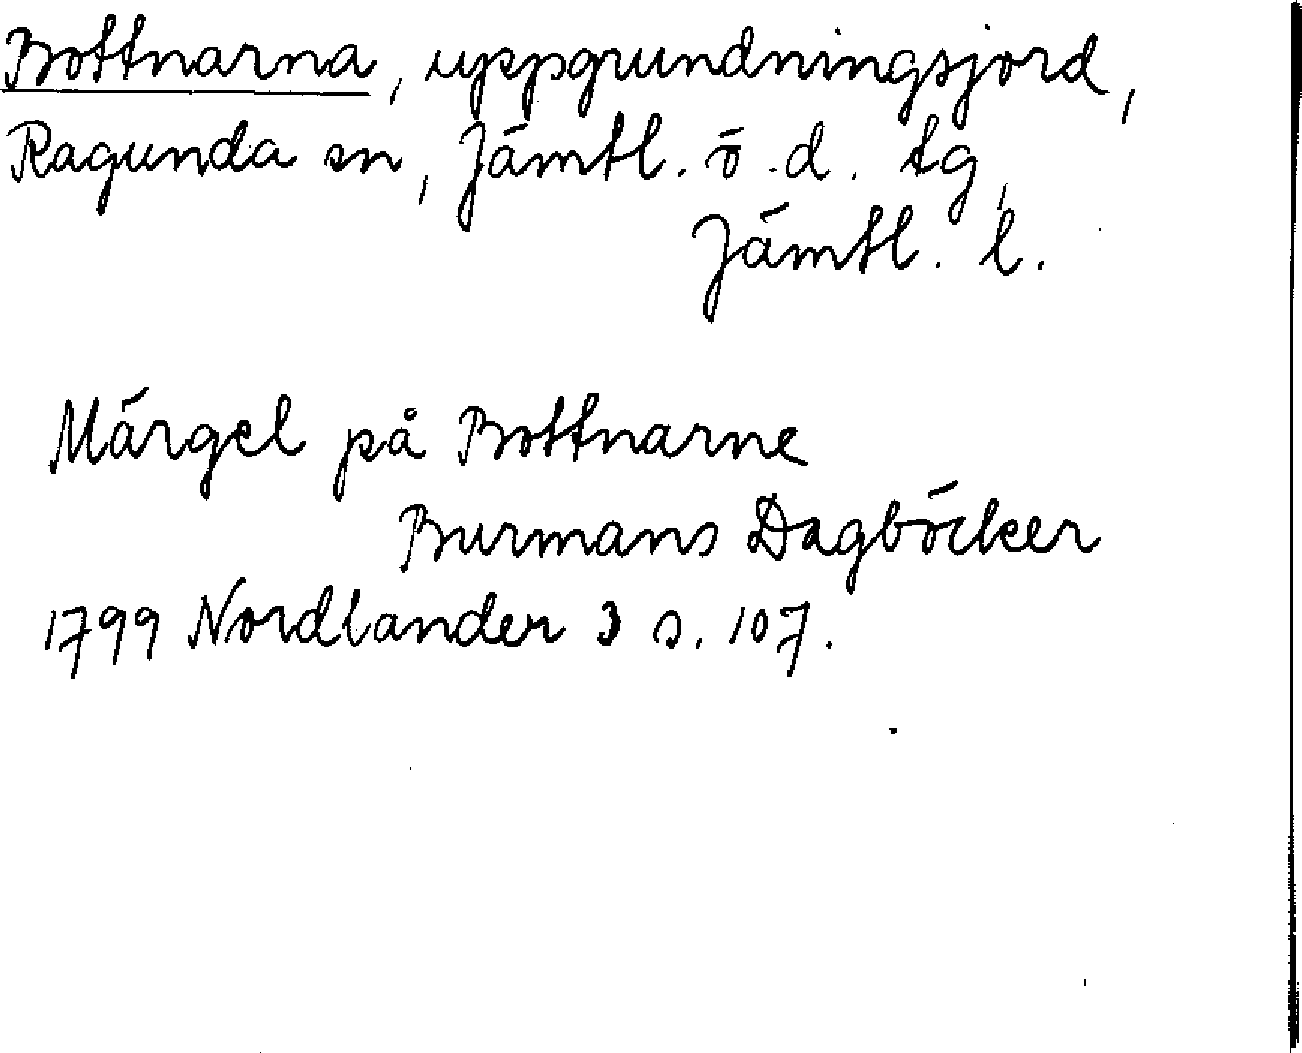 Bottnarna, uppgrundningsjord,
Ragunda sn, Jämtl. ö. d. tg,
Jämtl. l.
Märgel på Bottnarne
Burmans Dagböcker
1799 Nordlander 3 s. 107.